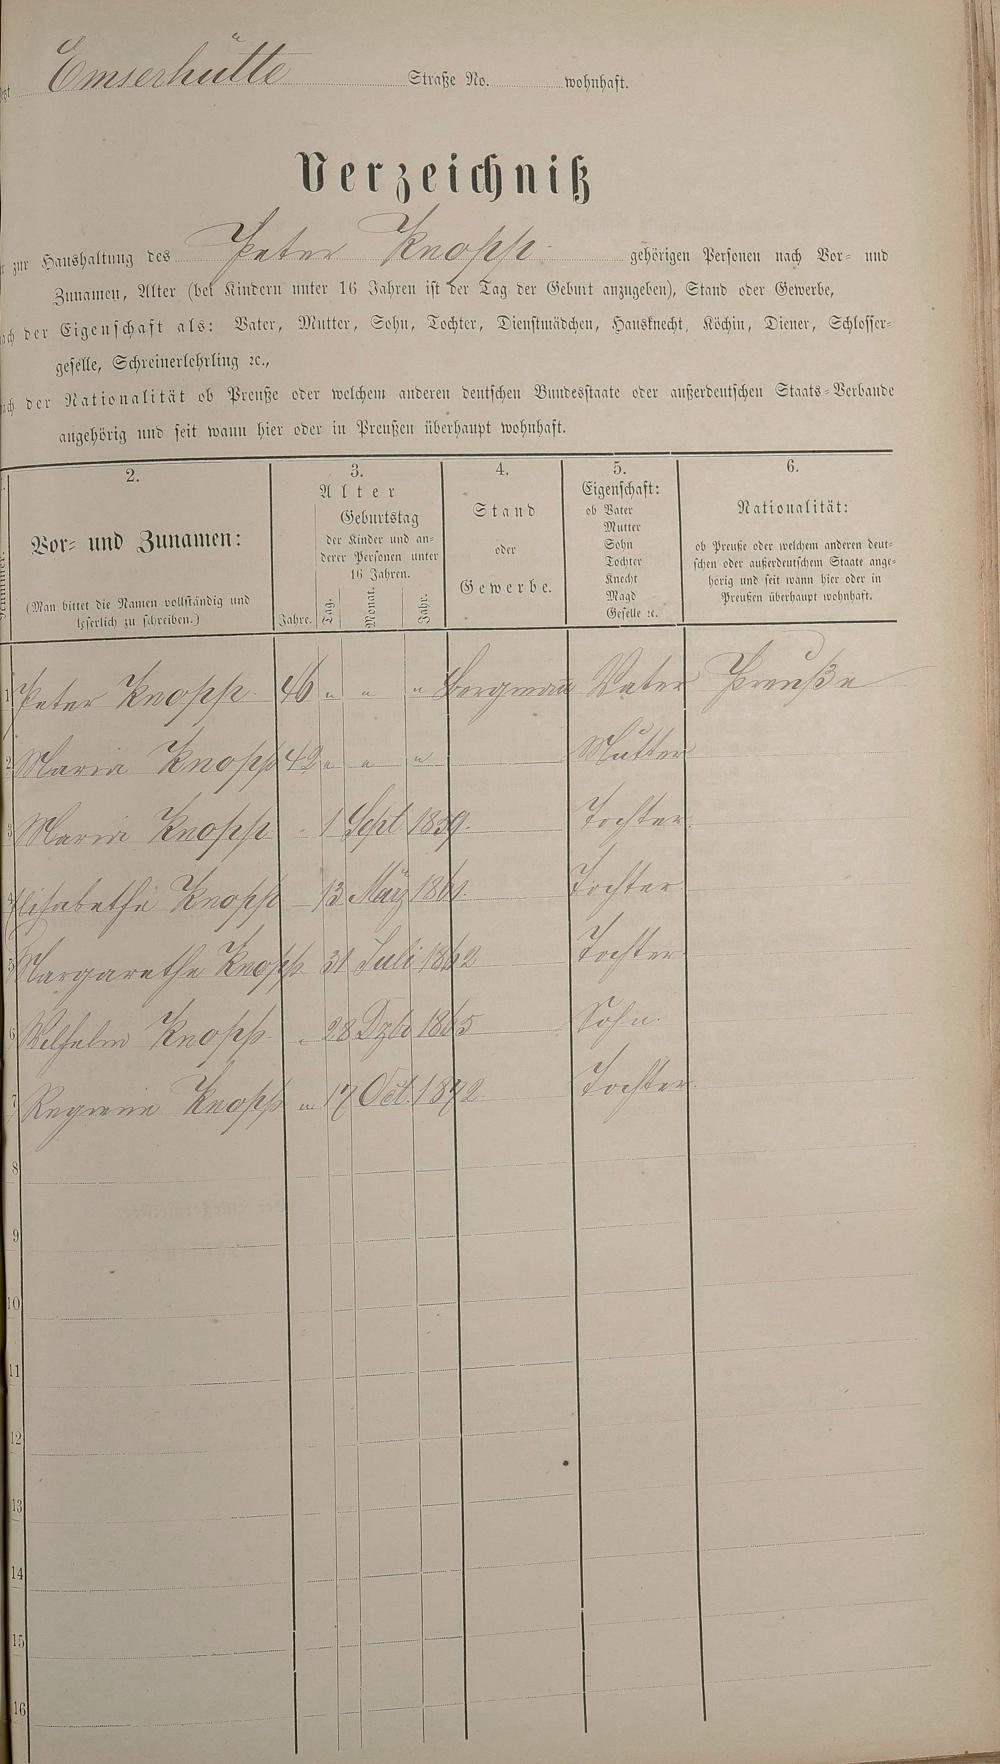 Emserhütte Straße No. wohnhaft.
Verzeichniß
zur Haushaltung des Peter Knopp gehörigen Personen nach Vor- und
Zunamen, Alter (bei Kindern unter 16 Jahren ist der Tag der Geburt anzugeben), Stand oder Gewerbe,
der Eigenschaft als: Vater, Mutter, Sohn, Tochter, Dienstmädchen, Hausknecht, Köchin, Diener, Schlosser-
geselle, Schreinerlehrling ꝛc.,
der Nationalität ob Preuße oder welchem anderen deutschen Bundesstaate oder außerdeutschen Staats-Verbande
angehörig und seit wann hier oder in Preußen überhaupt wohnhaft.
2.
Vor- und Zunamen:
(Man bittet die Namen vollständig und
leserlich zu schreiben.)
3.
Alter
Geburtstag
der Kinder und an-
derer Personen unter
16 Jahren.
Jahre. Tag. Monat. Jahr.
4.
Stand
oder
Gewerbe.
5.
Eigenschaft:
ob Vater
Mutter
Sohn
Tochter
Knecht
Magd
Geselle ꝛc.
6.
Nationalität:
ob Preuße oder welchem anderen deut-
schen oder außerdeutschem Staate ange-
hörig und seit wann hier oder in
Preußen überhaupt wohnhaft.
1 Peter Knopp 46 " " " Bergmann Vater Preuße
2 Maria Knopp 42 " " " Mutter
3 Maria Knopp - 1 Sept 1859. Tochter
4 Elisabetha Knopp - 13 März 1861. Tochter
5 Margaretha Knopp 31 Juli 1862 Tochter
6 Wilhelm Knopp - 28 Dzbr 1865 Sohn.
7 Knopp " 17 Oct. 1872 Tochter
8
9
10
11
12
13
14
15
16